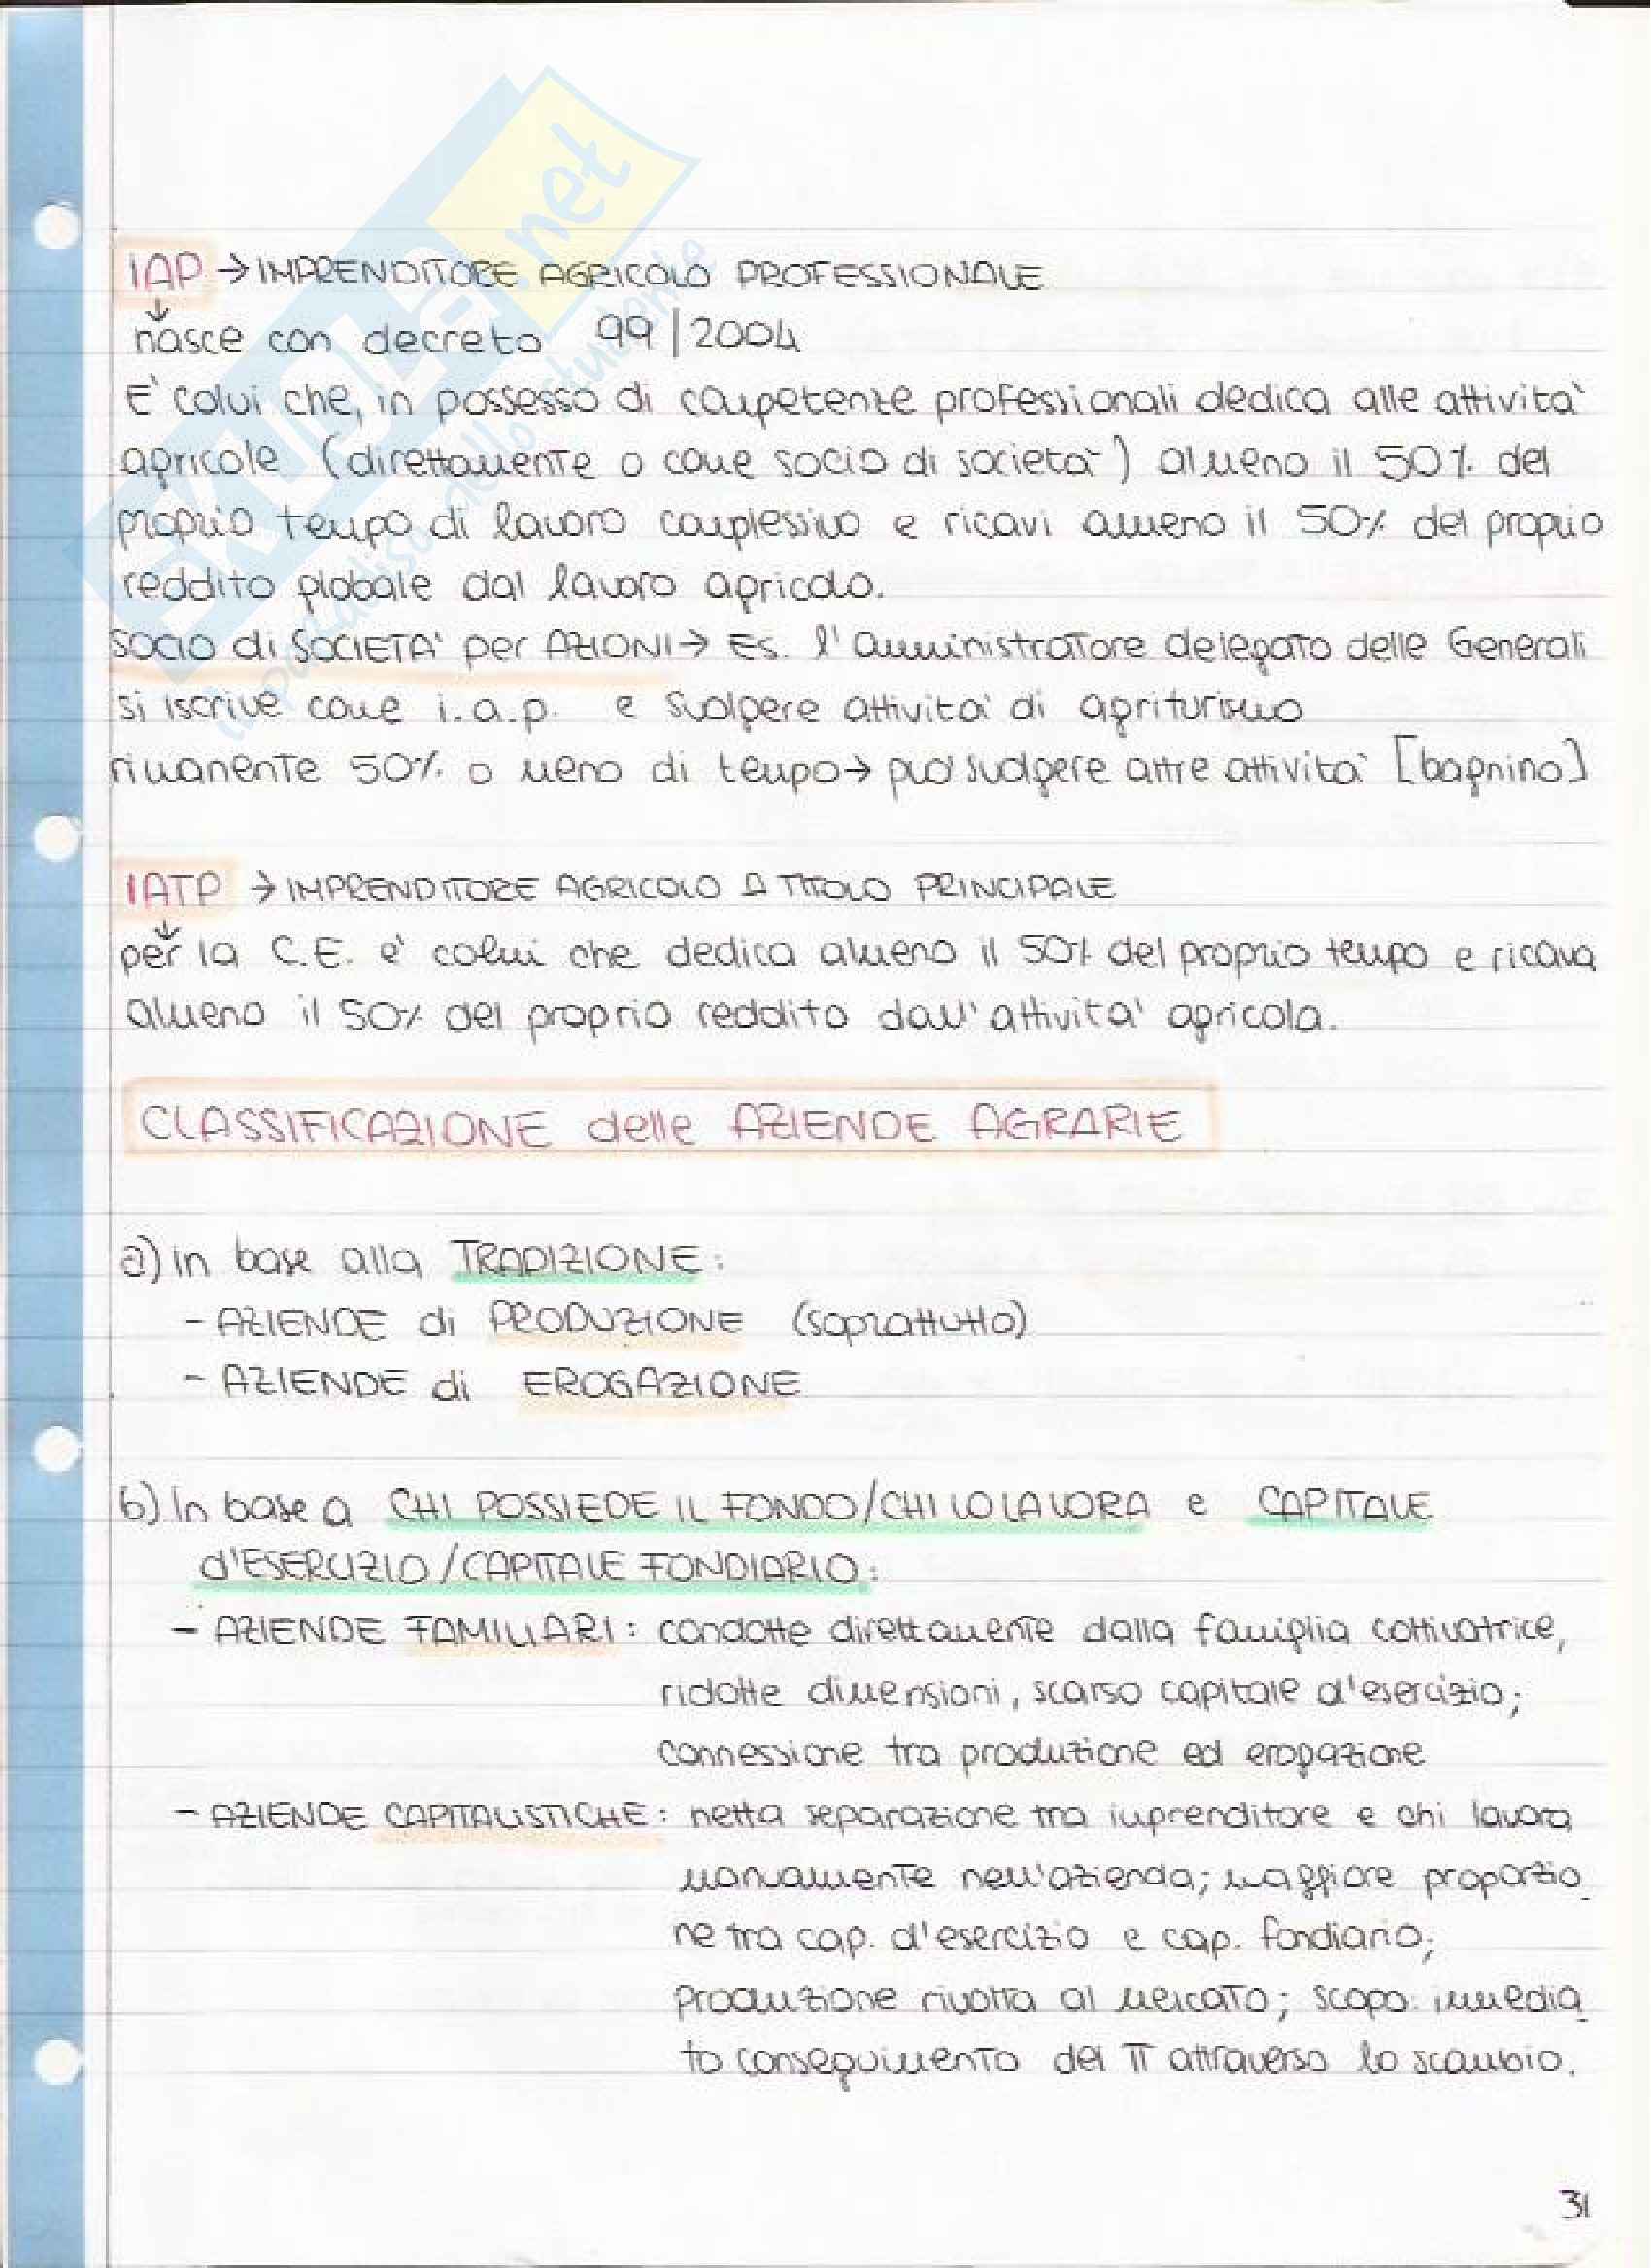 IAP → IMPRENDITORE AGRICOLO PROFESSIONALE
↓
nasce con decreto 99|2004
E' colui che, in possesso di competenze professionali dedica alle attività
agricole (direttamente o come socio di società) almeno il 50% del
proprio tempo di lavoro complessivo e ricavi almeno il 50% del proprio
reddito globale dal lavoro agricolo.
SOCIO di SOCIETA' per AZIONI → Es. l'amministratore delegato delle Generali
si iscrive come i.a.p. e svolgere attività di agriturismo
rimanente 50% o meno di tempo → può svolgere altre attività [bagnino]
IATP → IMPRENDITORE AGRICOLO A TITOLO PRINCIPALE
↓
per la C.E. è colui che dedica almeno il 50% del proprio tempo e ricava
almeno il 50% del proprio reddito dall'attività agricola.
CLASSIFICAZIONE delle AZIENDE AGRARIE
a) in base alla TRADIZIONE:
- AZIENDE di PRODUZIONE (soprattutto)
- AZIENDE di EROGAZIONE
b) in base a CHI POSSIEDE IL FONDO/CHI LO LAVORA e CAPITALE
d'ESERCIZIO/CAPITALE FONDIARIO:
- AZIENDE FAMILIARI: condotte direttamente dalla famiglia coltivatrice,
ridotte dimensioni, scarso capitale d'esercizio;
connessione tra produzione ed erogazione
- AZIENDE CAPITALISTICHE: netta separazione tra imprenditore e chi lavora
manualmente nell'azienda; maggiore proporzio
ne tra cap. d'esercizio e cap. fondiario;
produzione rivolta al mercato; scopo: immedia
to conseguimento del π attraverso lo scambio.
31
SKUOLA.net
il paradiso dello studente